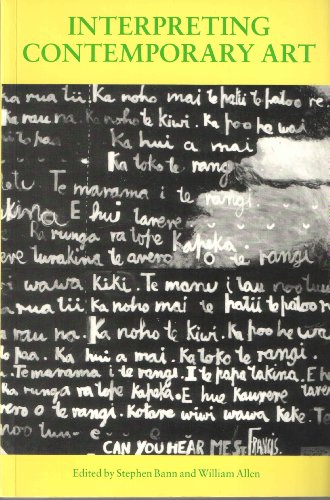 INTERPRETING
CONTEMPORARY ART
a rua tii. Ka noho mai te patii te patoo re
Ka rau na. Ka noho te kiwi. Ka poo he wai
te paa. Ka hui a mai
Ka toko te rangi
Te marama i te rangi.
takina E hui tarere
Ka runga ra tope kapeka.
ere turakina te avero o te rangi
wi wawa kiki. Te manu i tau
a rua tii. Ka noho mai te patii te patoo r
a rau na. Ka noho te kiwi. Ka poo he w
te paa. Ka hui a mai. Ka toko te rangi.
Te marama i te rangi. II te papa takina. E h
Ka runga ra tope kapeka. E hue kaurere
rero o te rangi. Kotare wiwi wawa keke. T
CAN YOU HEAR ME ST FRANCIS.
Edited by Stephen Bann and William Allen